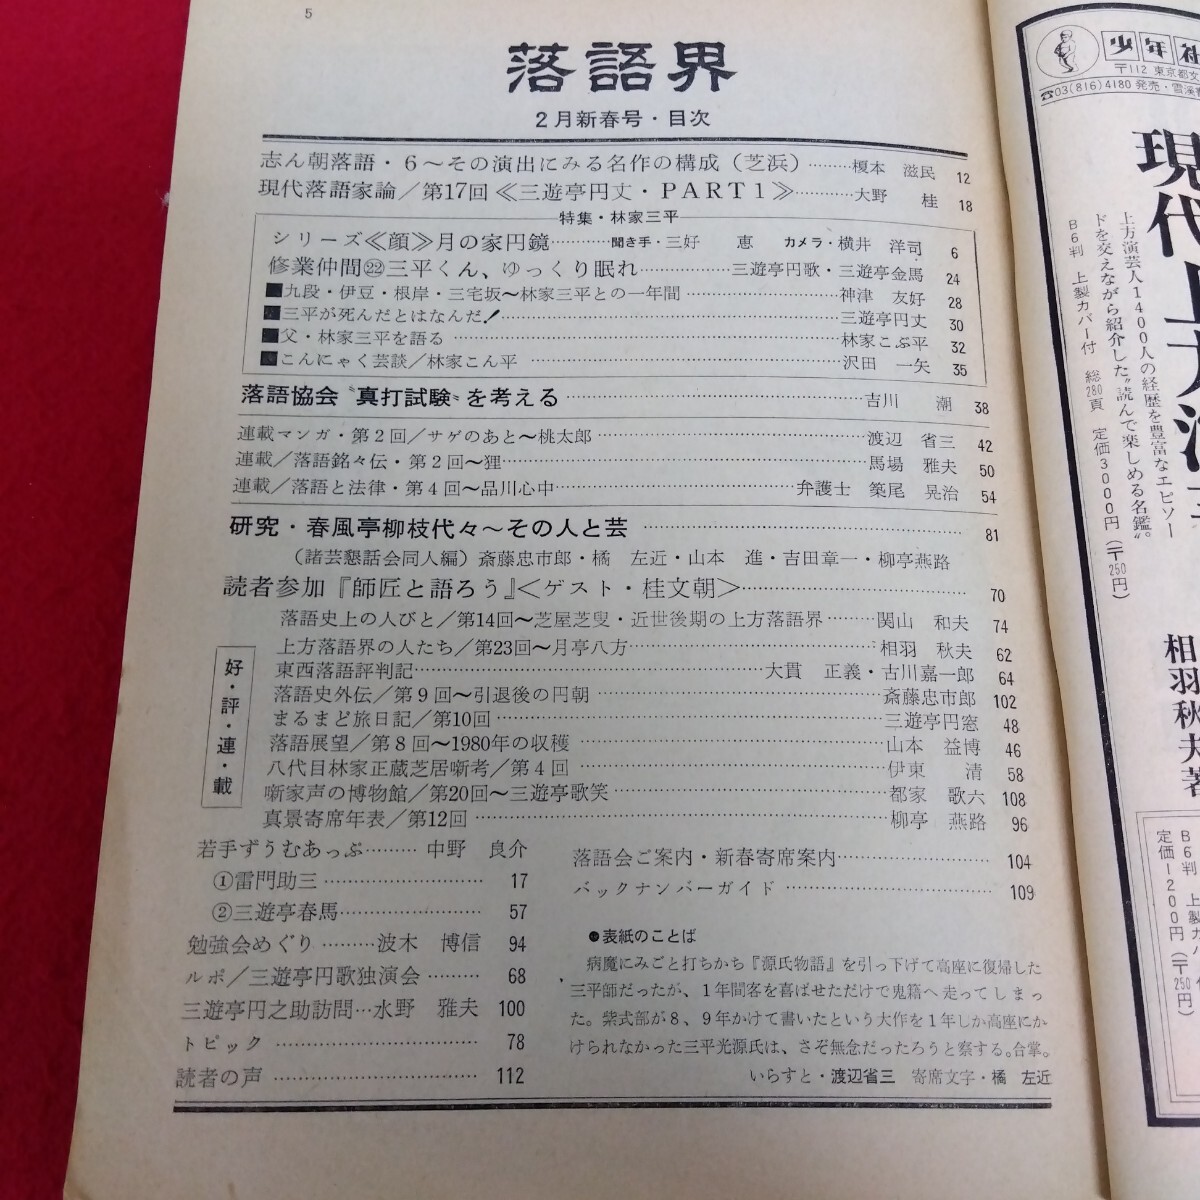 5
落語界
2月新春号・目次
志ん朝落語・6〜その演出にみる名作の構成（芝浜）………榎本 滋民 12
現代落語家論／第17回≪三遊亭円丈・PART1≫………大野 桂 18
特集・林家三平
シリーズ≪顔≫月の家円鏡………聞き手・三好 恵 カメラ・横井 洋司 6
修業仲間㉒三平くん、ゆっくり眠れ………三遊亭円歌・三遊亭金馬 24
■九段・伊豆・根岸・三宅坂〜林家三平との一年間………神津 友好 28
■三平が死んだとはなんだ！………三遊亭円丈 30
■父・林家三平を語る………林家こぶ平 32
■こんにゃく芸談／林家こん平………沢田 一矢 35
落語協会〝真打試験〟を考える………吉川 潮 38
連載マンガ・第2回／サゲのあと〜桃太郎………渡辺 省三 42
連載／落語銘々伝・第2回〜狸………馬場 雅夫 50
連載／落語と法律・第4回〜品川心中………弁護士 築尾 晃治 54
研究・春風亭柳枝代々〜その人と芸………81
（諸芸懇話会同人編）斎藤忠市郎・橘 左近・山本 進・吉田章一・柳亭燕路
読者参加『師匠と語ろう』＜ゲスト・桂文朝＞………70
好・評・連・載
落語史上の人びと／第14回〜芝屋芝叟・近世後期の上方落語界………関山 和夫 74
上方落語界の人たち／第23回〜月亭八方………相羽 秋夫 62
東西落語評判記………大貫 正義・古川嘉一郎 64
落語史外伝／第9回〜引退後の円朝………斎藤忠市郎 102
まるまど旅日記／第10回………三遊亭円窓 48
落語展望／第8回〜1980年の収穫………山本 益博 46
八代目林家正蔵芝居噺考／第4回………伊東 清 58
噺家声の博物館／第20回〜三遊亭歌笑………都家 歌六 108
真景寄席年表／第12回………柳亭 燕路 96
若手ずうむあっぷ………中野 良介
①雷門助三………17
②三遊亭春馬………57
勉強会めぐり………波木 博信 94
ルポ／三遊亭円歌独演会………68
三遊亭円之助訪問…水野 雅夫 100
トピック………78
読者の声………112
落語会ご案内・新春寄席案内………104
バックナンバーガイド………109
●表紙のことば
病魔にみごと打ちかち『源氏物語』を引っ下げて高座に復帰した
三平師だったが、1年間客を喜ばせただけで鬼籍へ走ってしまっ
た。紫式部が8、9年かけて書いたという大作を1年しか高座にか
けられなかった三平光源氏は、さぞ無念だったろうと察する。合掌。
いらすと・渡辺省三 寄席文字・橘 左近
少年社
〒112 東京都文
☎03(816)4180 発売・雲渓
現代上方演
上方演芸人1400人の経歴を豊富なエピソー
ドを交えながら紹介した〝読んで楽しめる名鑑〟
B6判 上製カバー付 総280頁 定価3000円（〒250円）
相羽秋夫著
B6判 上
定価1200円（〒250円）